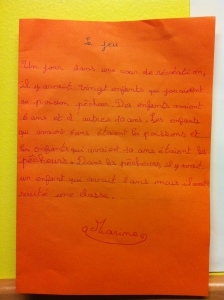 Le jeu
Un jour dans une cour de récréation,
il y avait vingt enfants qui jouaient
au poisson pêcheur. Des enfants avaient
6 ans et d'autres 10 ans. Les enfants
qui avaient 6 ans étaient les poissons et
les enfants qui avaient 10 ans étaient les
pêcheurs. Dans les pêcheurs il y avait
un enfant qui avait 9 ans mais il avait
sauté une classe.
Marine